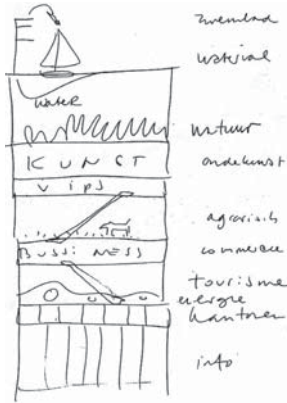 zwembad
water
natuur
KUNST
VIPS
agrarisch
BUSSINESS
commerce
tourisme
energie
kantoren
info